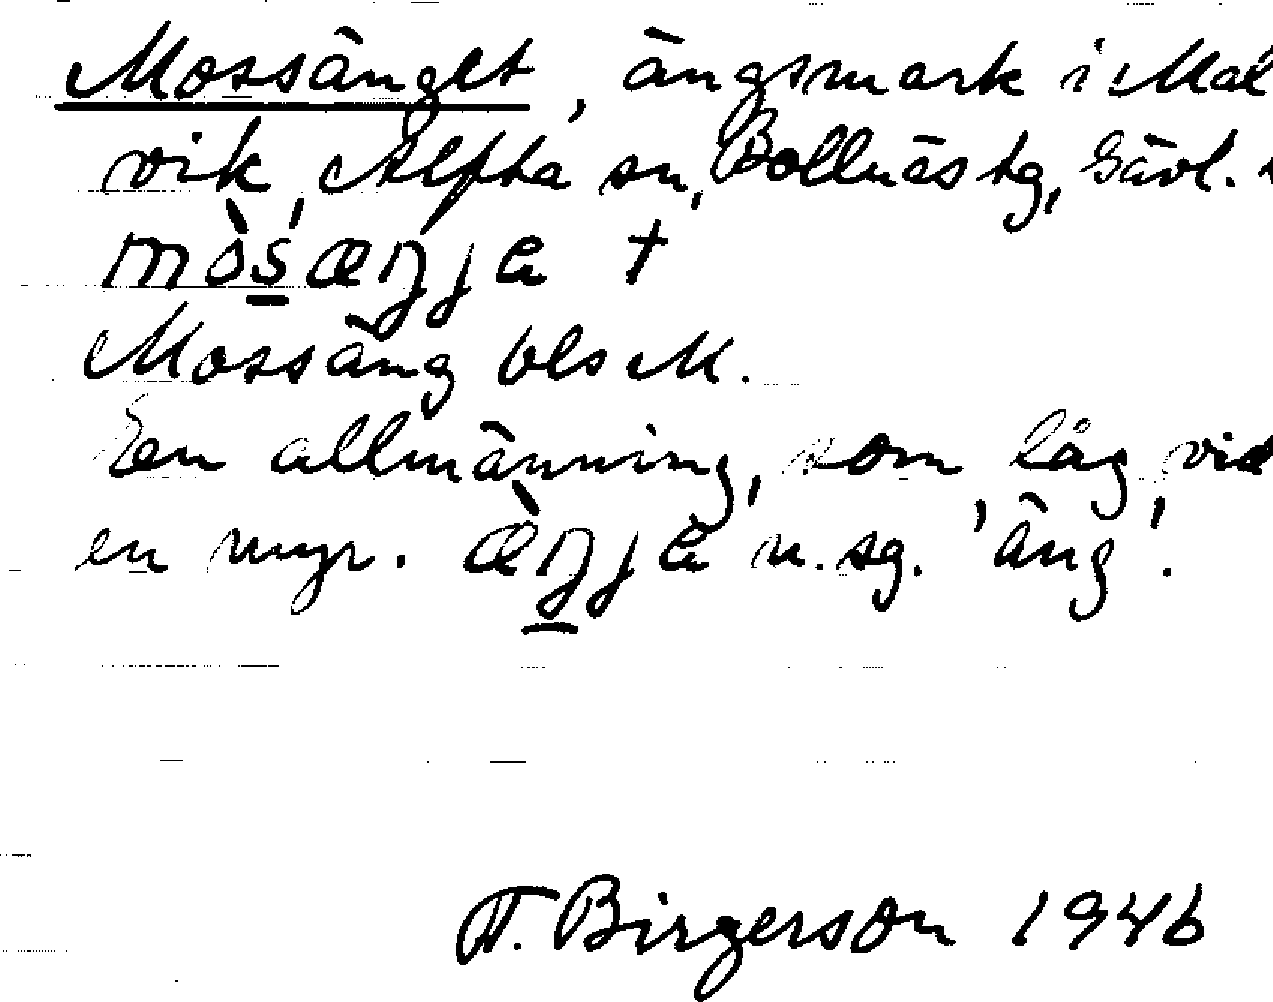 Mossänget, ängsmark i Mål
vik, Alfta sn, Bollnäs tg, Gävl.
mòs̲áŋja †
Mossäng bls M.
En allmänning, som låg vid
en myr. æ̀ŋ̲ja n. sg. 'äng'.
T. Birgerson 1946